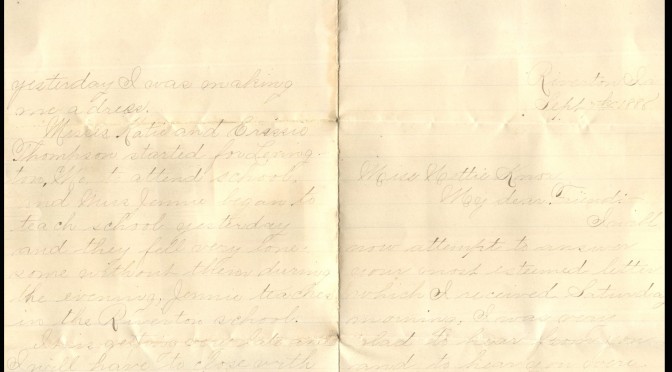 yesterday I was making
me a dress.
Misses Katie and
Thompson started for Lexing-
ton, to attend school
and Miss Jennie began to
teach school yesterday
and they felt very lone-
some without them during
the evening. Jennie teaches
in the Riverton school.
It is getting late and
I will have to close with
Riverton, Ia
Sept
Miss Hattie Knox
My dear Friend:
I will
now attempt to answer
your most esteemed letter
which I received Saturday
morning, I was very
glad to hear from you
and to know you were